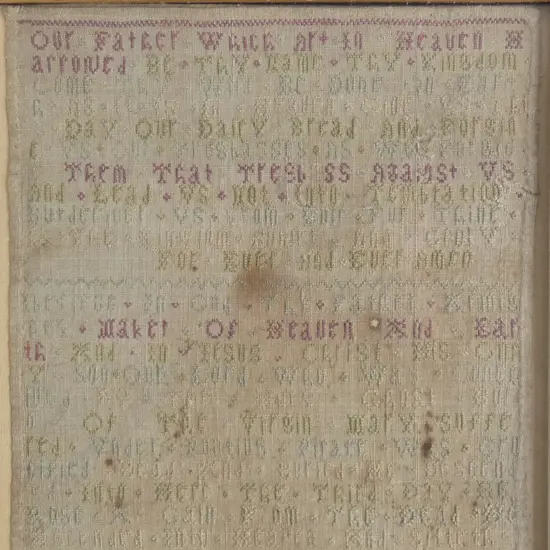 Our Father Which Art In Heaven H
allowed Be Thy Name Thy Kingdom
Come Thy Will Be Done On Eart
h As It Is In Heaven Give Us This
Day Our Daily Bread And Forgiv
e Us Our Trespasses As We Forgive
Them That Trespass Against Us
And Lead Us Not Into Temptation
But Deliver Us From Evil For Thine
Is The Kingdom Power And Glory
For Ever And Ever Amen
Believe In God The Father
Maker Of Heaven And Ear
th And In Jesus Christ His On
y Son Our Lord Who Was
By Holy Ghost
Of The Virgin Mary Suffe
red Under Pontius Pilate Was Cru
cified Dead And Buried He Descend
ed Into Hell The Third Day He
Rose A Gain From The Dead
Ascended Into Heaven And